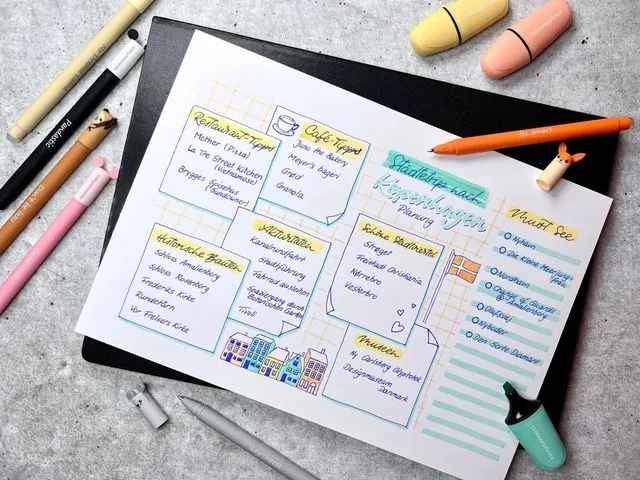 Restaurant-Tipps
Mother (Pizza)
La Tre Street Kitchen
(Vietnamese)
Brigges Spisehus
(Sundowner)
Café-Tipps
Juno the Bakery
Meyer's bageri
Grød
Granola
Städtetrip nach
Kopenhagen
Planung
Must See
Nyhavn
Die kleine Meerjung-
frau
Nordhavn
Change of Guards
@ Amalienborg
Olufsvej
Nyboder
Den Sorte Diamant
Historische Bauten
Schloss Amalienborg
Schloss Rosenborg
Frederiks Kirke
Rundetårn
Vor Frelsers Kirke
Aktivitäten
Kanalrundfahrt
Stadtführung
Fahrrad ausleihen
Spaziergang durch
Botanischen Garten
Tivoli
Schöne Stadtviertel
Strøget
Freistadt Christiania
Nørrebro
Vesterbro
Museen
Ny Carlsberg Glyptotek
Designmuseum
Danmark
Pentastic
Don't be lazy
Be smart